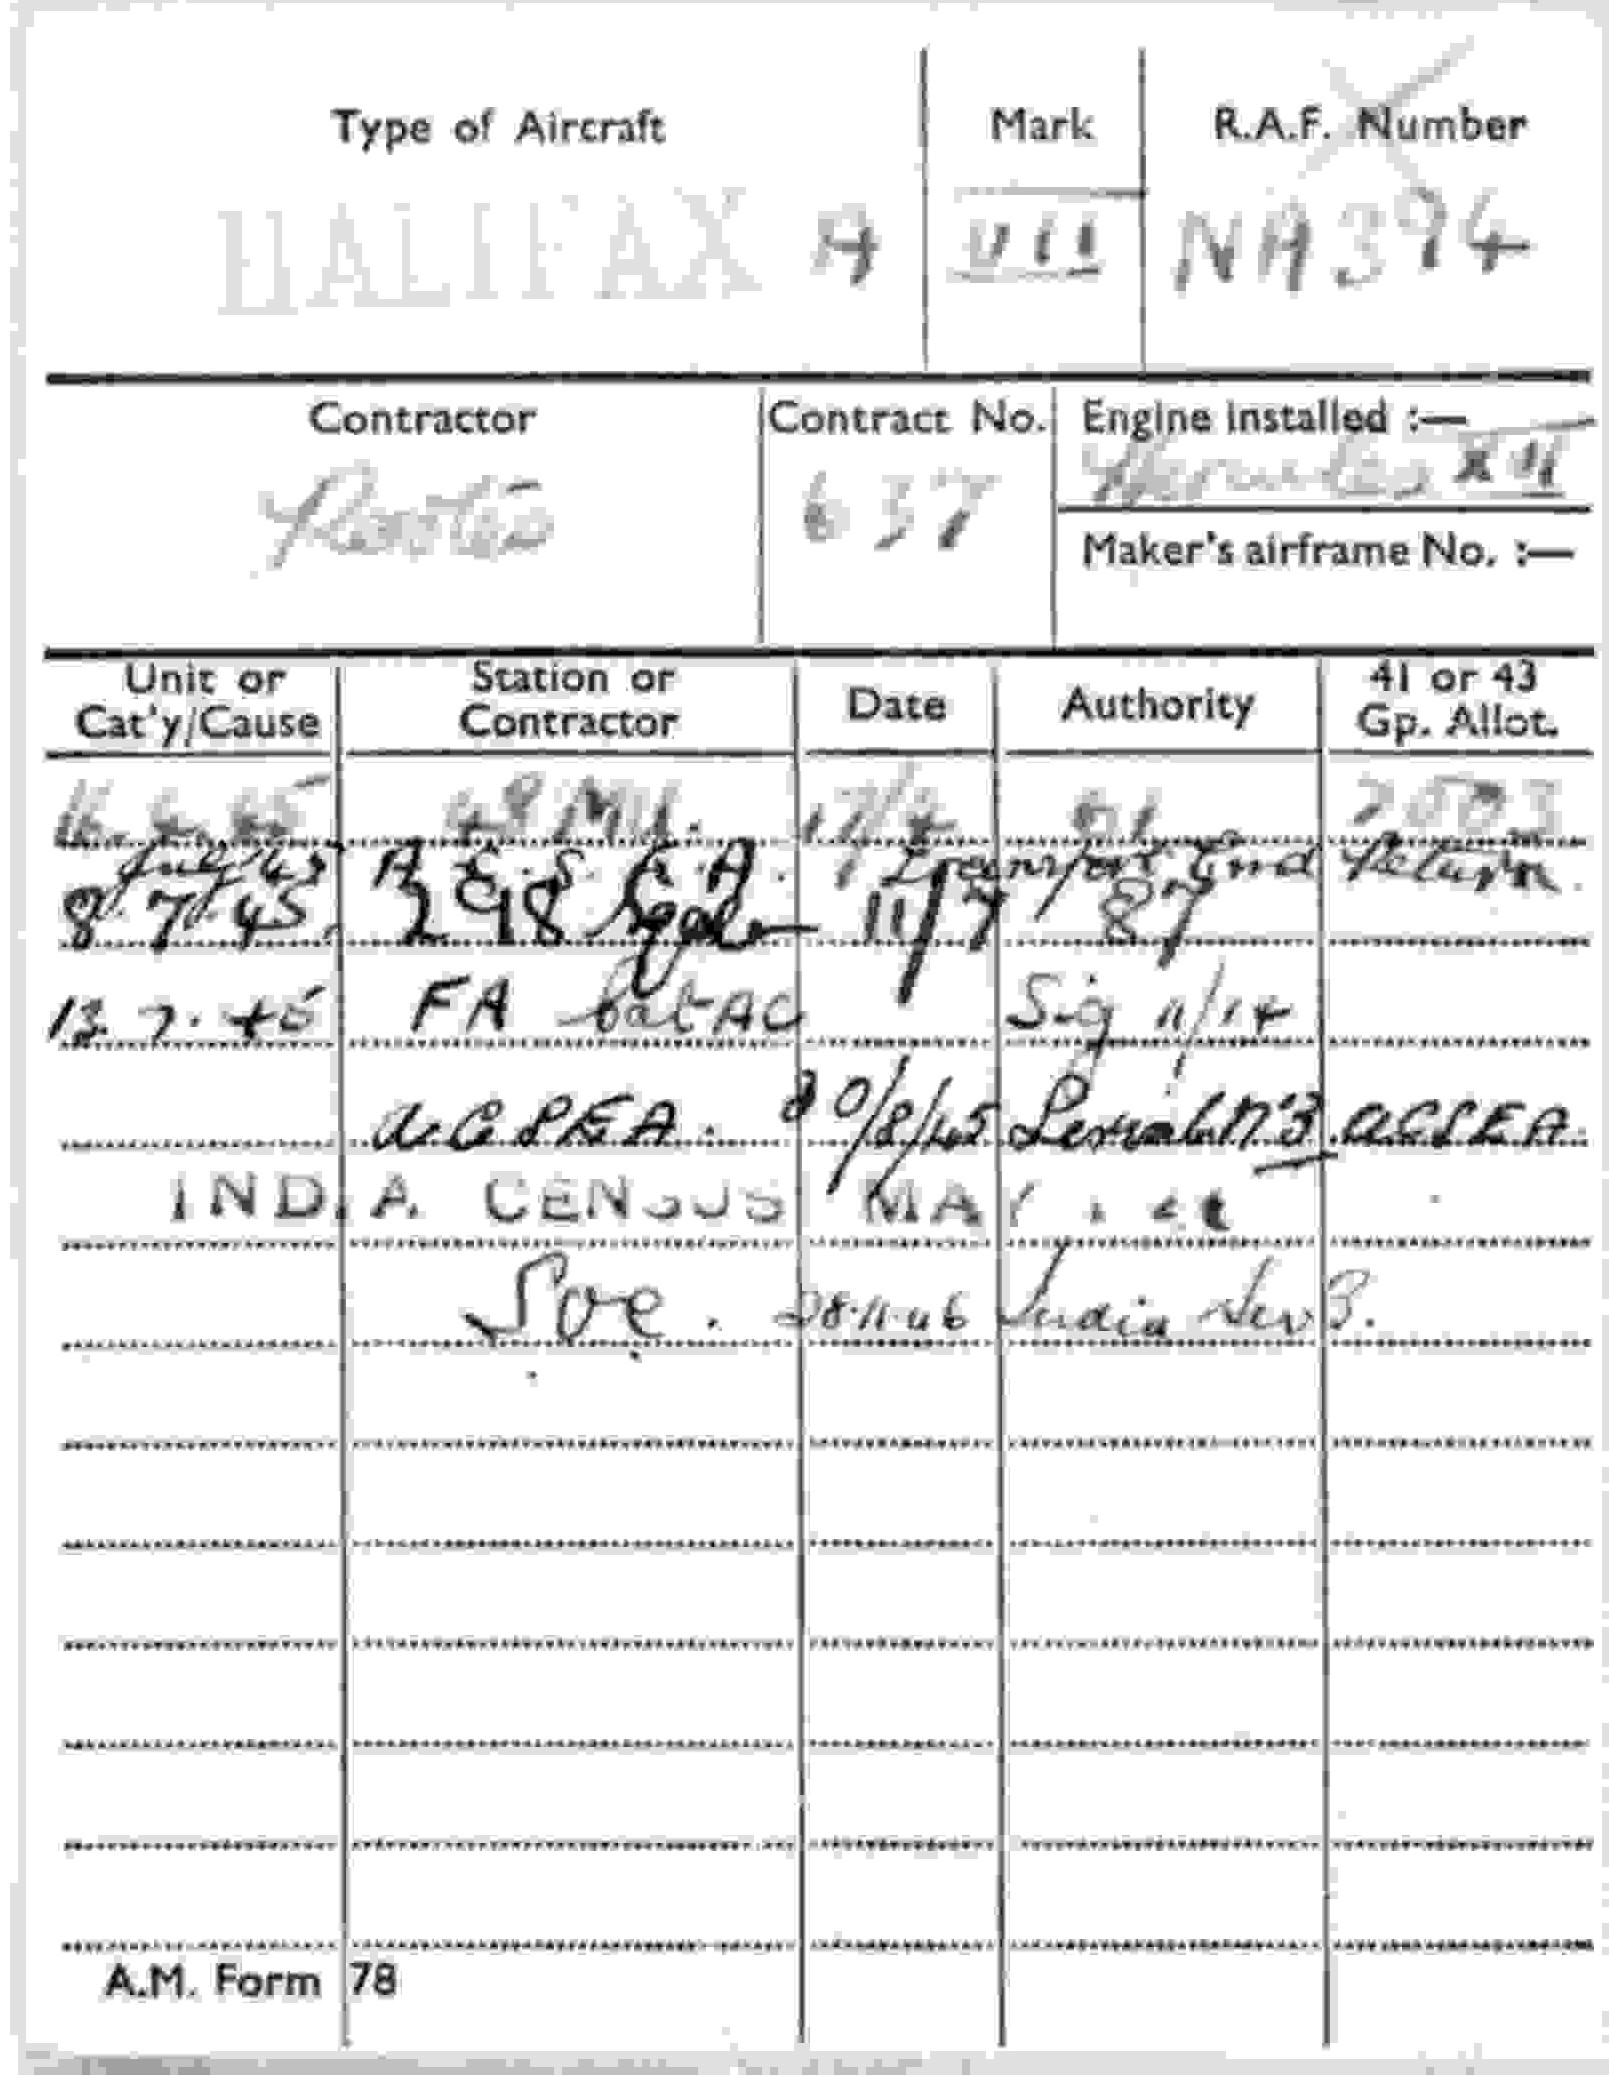 Type of Aircraft Mark R.A.F. Number
HALIFAX A VII NA394
Contractor Contract No. Engine installed :—
Rootes 637 Hercules XVI
Maker's airframe No. :—
Unit or Cat'y/Cause Station or Contractor Date Authority 41 or 43 Gp. Allot.
16. 4. 45 48 MU. 17/4 81
July 45 A. C. S. E. A. Return.
8. 7. 45. 298 Sqdn 11/7 87
13. 7. 45 FA Cat AC Sig 11/14
A.C.S.E.A. 30/8/45 Serial N° 3 A.C.S.E.A.
INDIA CENSUS MAY
Soc. 28.11.46 India
A.M. Form 78